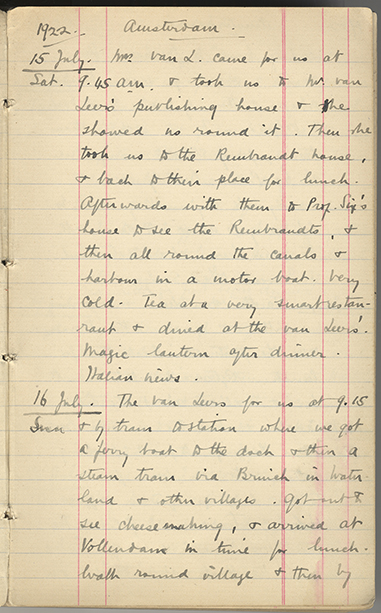 1922. Amsterdam.
15 July. Mrs van L. came for us at
Sat. 9.45 am. & took us to Mr van
Leer's publishing house & she
showed us round it. Then she
took us to the Rembrandt house,
& back to their place for lunch.
Afterwards with them to Prof. Six's
house to see the Rembrandts, &
then all round the canals &
harbour in a motor boat. Very
cold. Tea at a very smart restau-
rant & dined at the van Leers'.
Magic lantern after dinner.
Italian views.
16 July. The van Leers for us at 9.15
Sun & by tram to station where we got
a ferry boat to the dock & then a
steam tram via in Water
land & other villages. Got out to
see cheesemaking, & arrived at
Vollendam in time for lunch.
Walk round village & then by